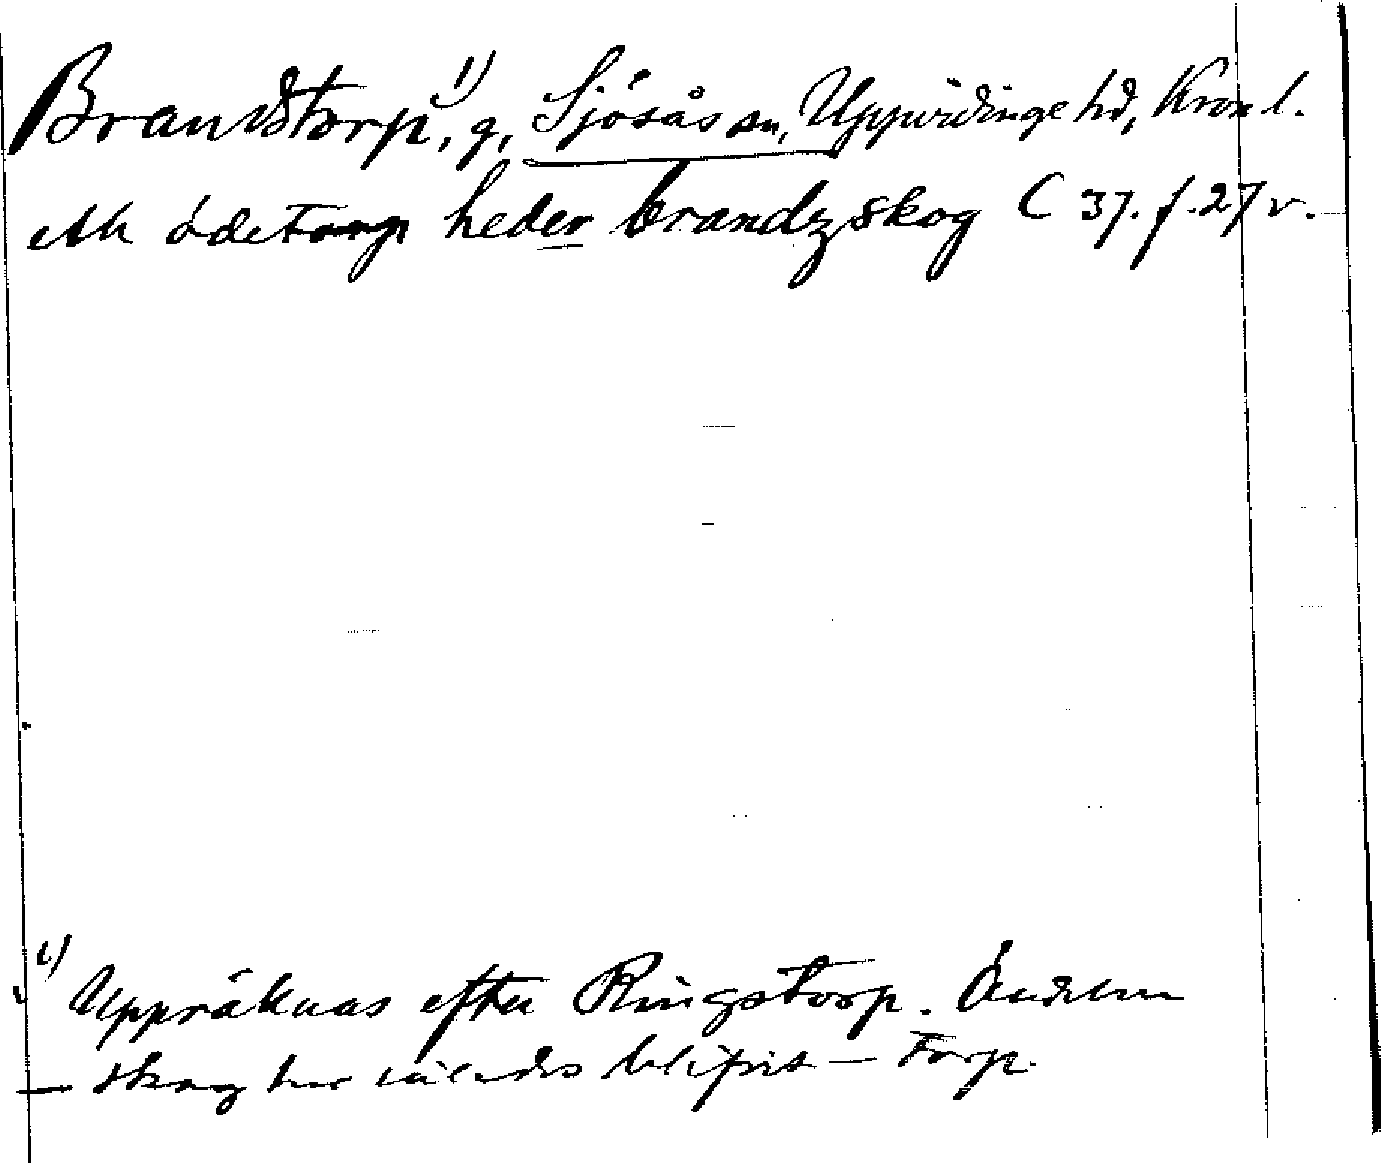 Brandstorp,¹⁾ g, Sjösås sn, Uppvidinge hd, Kron l.
ett ödetorp heder brandzskog C 37. f. 27 v.
¹⁾ Uppräknas efter Ringstorp. Ändelsen
— skog har således blifvit — torp.